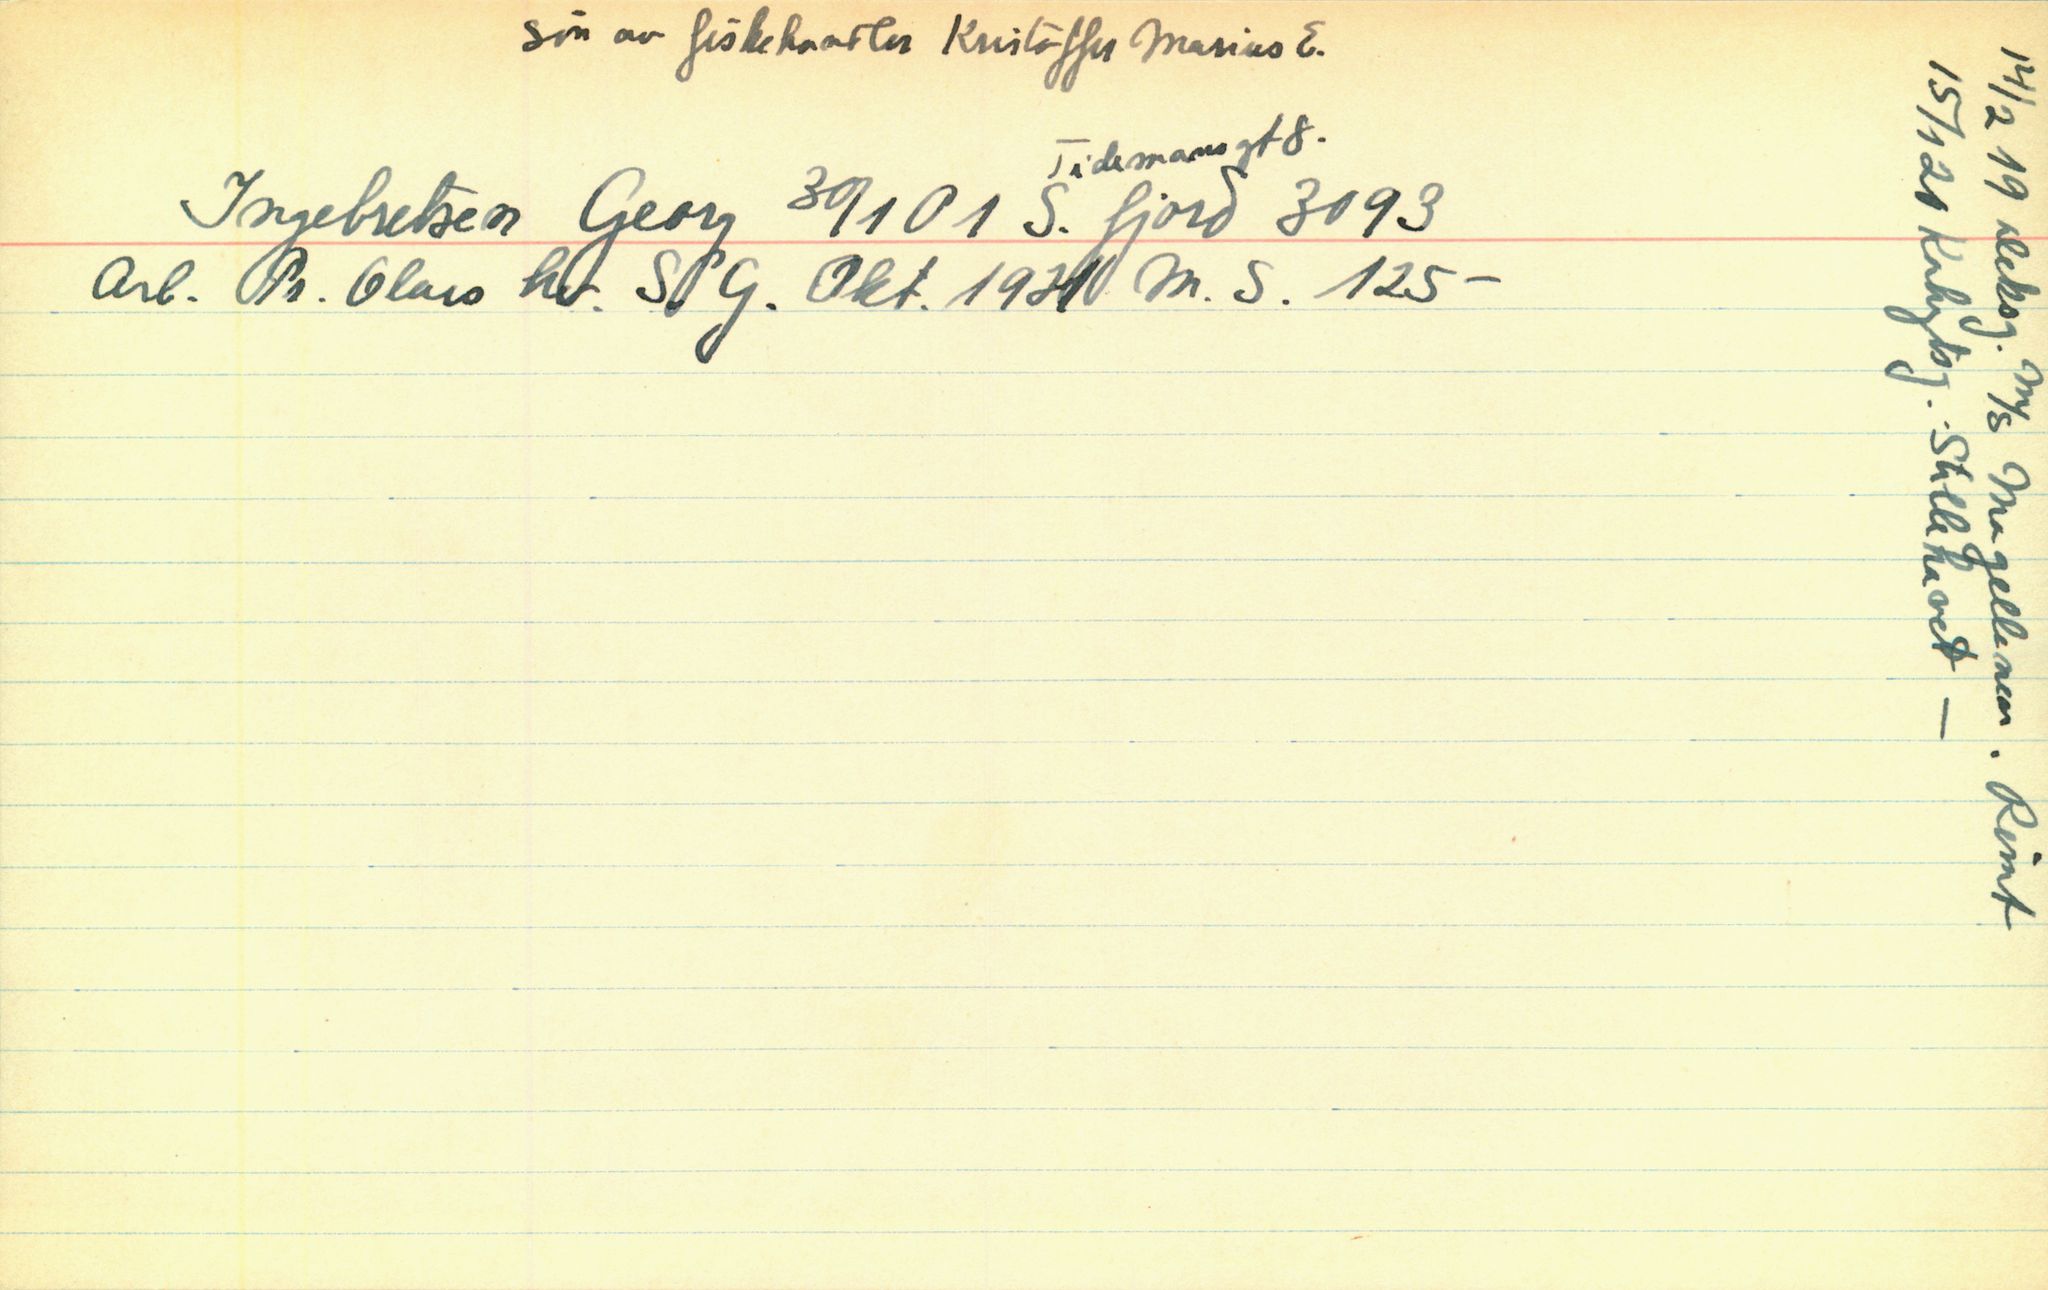 Søn av fiskehandler Kristoffer Marius E.
Tidemansgt 8.
Ingebretsen Georg 30/1 01 S. fjord 3093
Arb. Pr. Olavs hv. S. G. Okt. 1931 M. S. 125-
14/2 19 deksg. M/S Magellan. Rømt
15/1 20 Stillehavet —